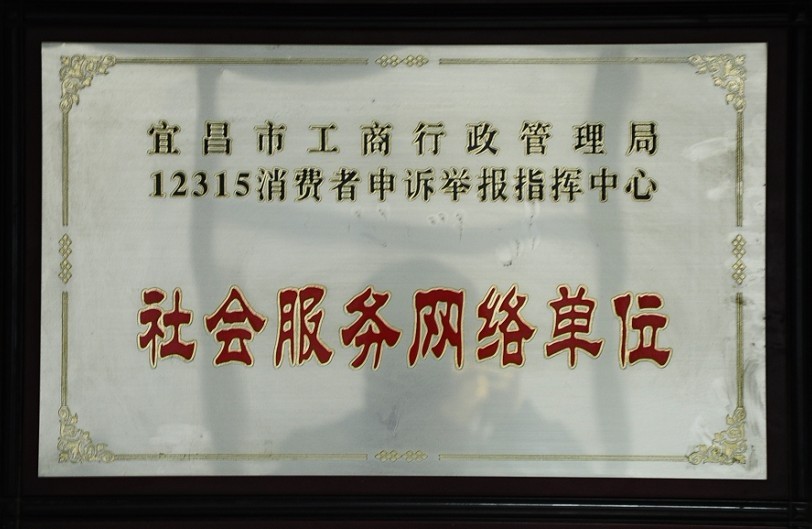 宜昌市工商行政管理局
12315消费者申诉举报指挥中心
社会服务网络单位